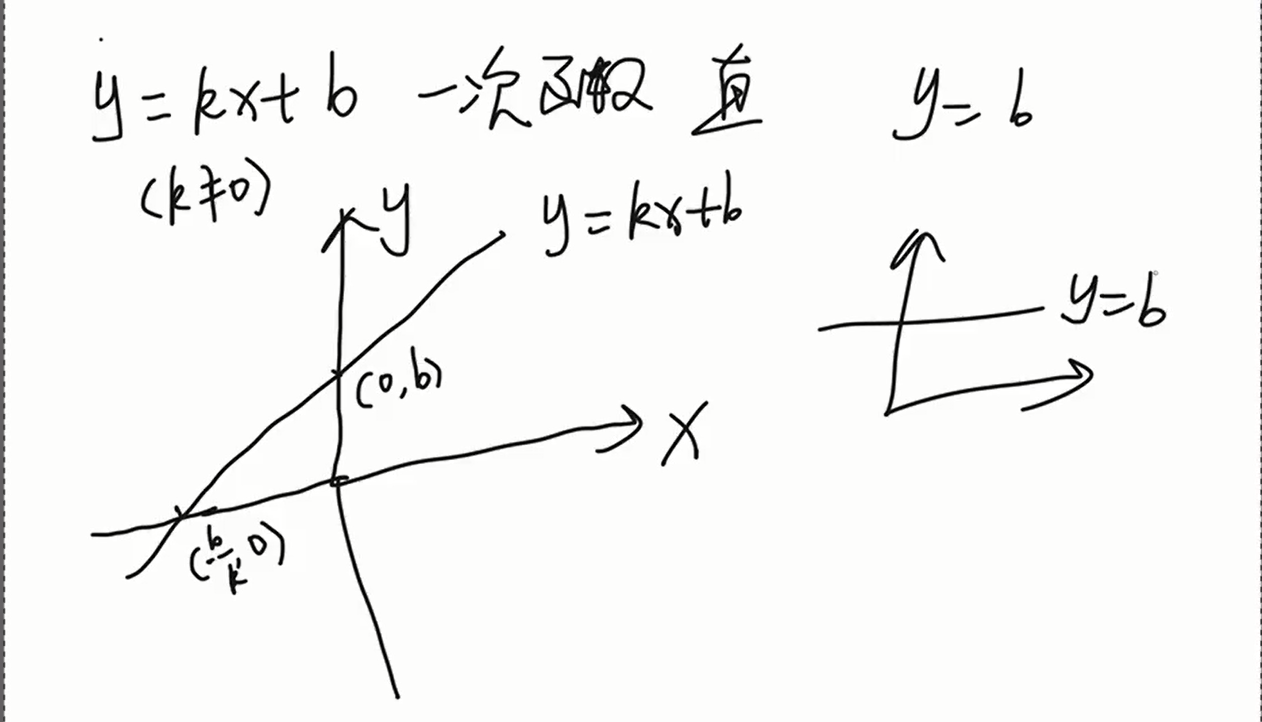 y = kx + b 一次函数 直 y = b
(k≠0)
y
y = kx+b
y = b
(0, b)
x
(-b/k, 0)